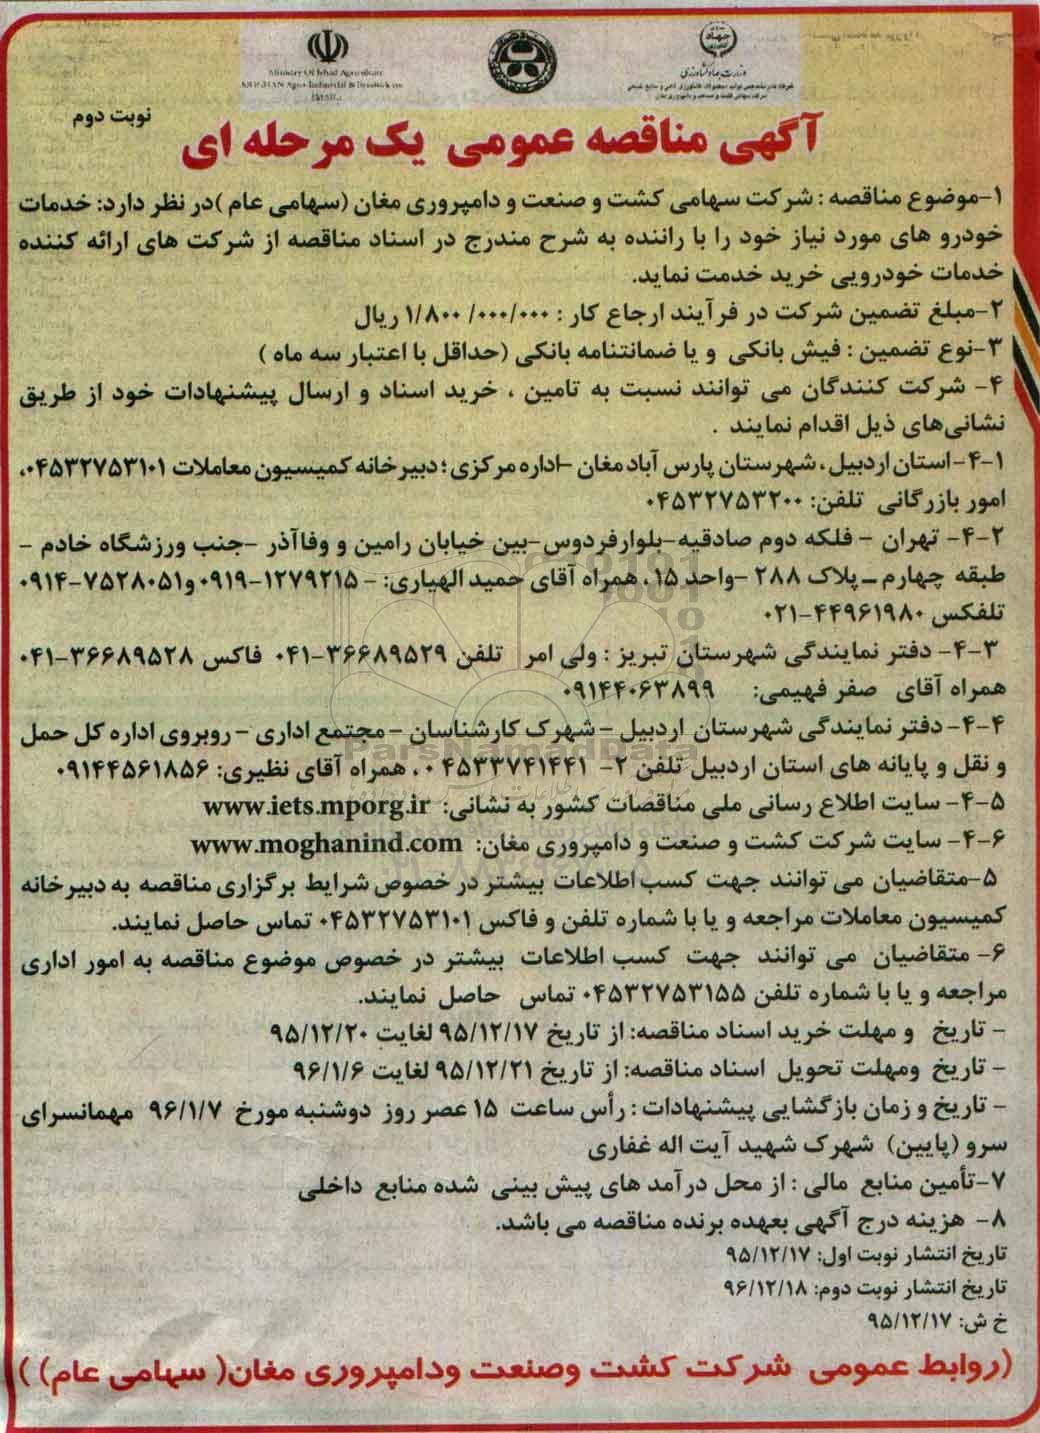 جهاد
وزارت جهاد کشاورزی
Ministry Of Jehad Agriculture
MOGHAN Agro-Industrial & livestock co
نوبت دوم
آگهی مناقصه عمومی یک مرحله ای
۱-موضوع مناقصه : شرکت سهامی کشت و صنعت و دامپروری مغان (سهامی عام )در نظر دارد: خدمات
خودرو های مورد نیاز خود را با راننده به شرح مندرج در اسناد مناقصه از شرکت های ارائه کننده
خدمات خودرویی خرید خدمت نماید.
۲-مبلغ تضمین شرکت در فرآیند ارجاع کار : ۱/۸۰۰ /۰۰۰/۰۰۰ ریال
۳-نوع تضمین : فیش بانکی و یا ضمانتنامه بانکی (حداقل با اعتبار سه ماه )
۴- شرکت کنندگان می توانند نسبت به تامین ، خرید اسناد و ارسال پیشنهادات خود از طریق
نشانی‌های ذیل اقدام نمایند .
۴-۱-استان اردبیل، شهرستان پارس آباد مغان -اداره مرکزی؛ دبیرخانه کمیسیون معاملات ۰۴۵۳۲۷۵۳۱۰۱،
امور بازرگانی تلفن: ۰۴۵۳۲۷۵۳۲۰۰
۴-۲- تهران - فلکه دوم صادقیه-بلوارفردوس-بین خیابان رامین و وفاآذر -جنب ورزشگاه خادم -
طبقه چهارم -پلاک ۲۸۸ -واحد ۱۵، همراه آقای حمید الهیاری: - ۱۲۷۹۲۱۵-۰۹۱۹ و۷۵۲۸۰۵۱-۰۹۱۴
تلفکس ۴۴۹۶۱۹۸۰-۰۲۱
۴-۳- دفتر نمایندگی شهرستان تبریز : ولی امر تلفن ۳۶۶۸۹۵۲۹-۰۴۱ فاکس ۳۶۶۸۹۵۲۸-۰۴۱
همراه آقای صفر فهیمی: ۰۹۱۴۴۰۶۳۸۹۹
۴-۴- دفتر نمایندگی شهرستان اردبیل - شهرک کارشناسان - مجتمع اداری - روبروی اداره کل حمل
و نقل و پایانه های استان اردبیل تلفن ۲- ۰۴۵۳۳۷۴۱۴۴۱ ، همراه آقای نظیری: ۰۹۱۴۴۵۶۱۸۵۶
۴-۵- سایت اطلاع رسانی ملی مناقصات کشور به نشانی: www.iets.mporg.ir
۴-۶- سایت شرکت کشت و صنعت و دامپروری مغان: www.moghanind.com
۵-متقاضیان می توانند جهت کسب اطلاعات بیشتر در خصوص شرایط برگزاری مناقصه به دبیرخانه
کمیسیون معاملات مراجعه و یا با شماره تلفن و فاکس ۰۴۵۳۲۷۵۳۱۰۱ تماس حاصل نمایند.
۶- متقاضیان می توانند جهت کسب اطلاعات بیشتر در خصوص موضوع مناقصه به امور اداری
مراجعه و یا با شماره تلفن ۰۴۵۳۲۷۵۳۱۵۵ تماس حاصل نمایند.
- تاریخ و مهلت خرید اسناد مناقصه: از تاریخ ۹۵/۱۲/۱۷ لغایت ۹۵/۱۲/۲۰
- تاریخ ومهلت تحویل اسناد مناقصه: از تاریخ ۹۵/۱۲/۲۱ لغایت ۹۶/۱/۶
- تاریخ و زمان بازگشایی پیشنهادات : رأس ساعت ۱۵ عصر روز دوشنبه مورخ ۹۶/۱/۷ مهمانسرای
سرو (پایین) شهرک شهید آیت اله غفاری
۷-تأمین منابع مالی : از محل درآمد های پیش بینی شده منابع داخلی
۸- هزینه درج آگهی بعهده برنده مناقصه می باشد.
تاریخ انتشار نوبت اول: ۹۵/۱۲/۱۷
تاریخ انتشار نوبت دوم: ۹۶/۱۲/۱۸
خ ش: ۹۵/۱۲/۱۷
(روابط عمومی شرکت کشت وصنعت ودامپروری مغان( سهامی عام) )
ParsNamadData